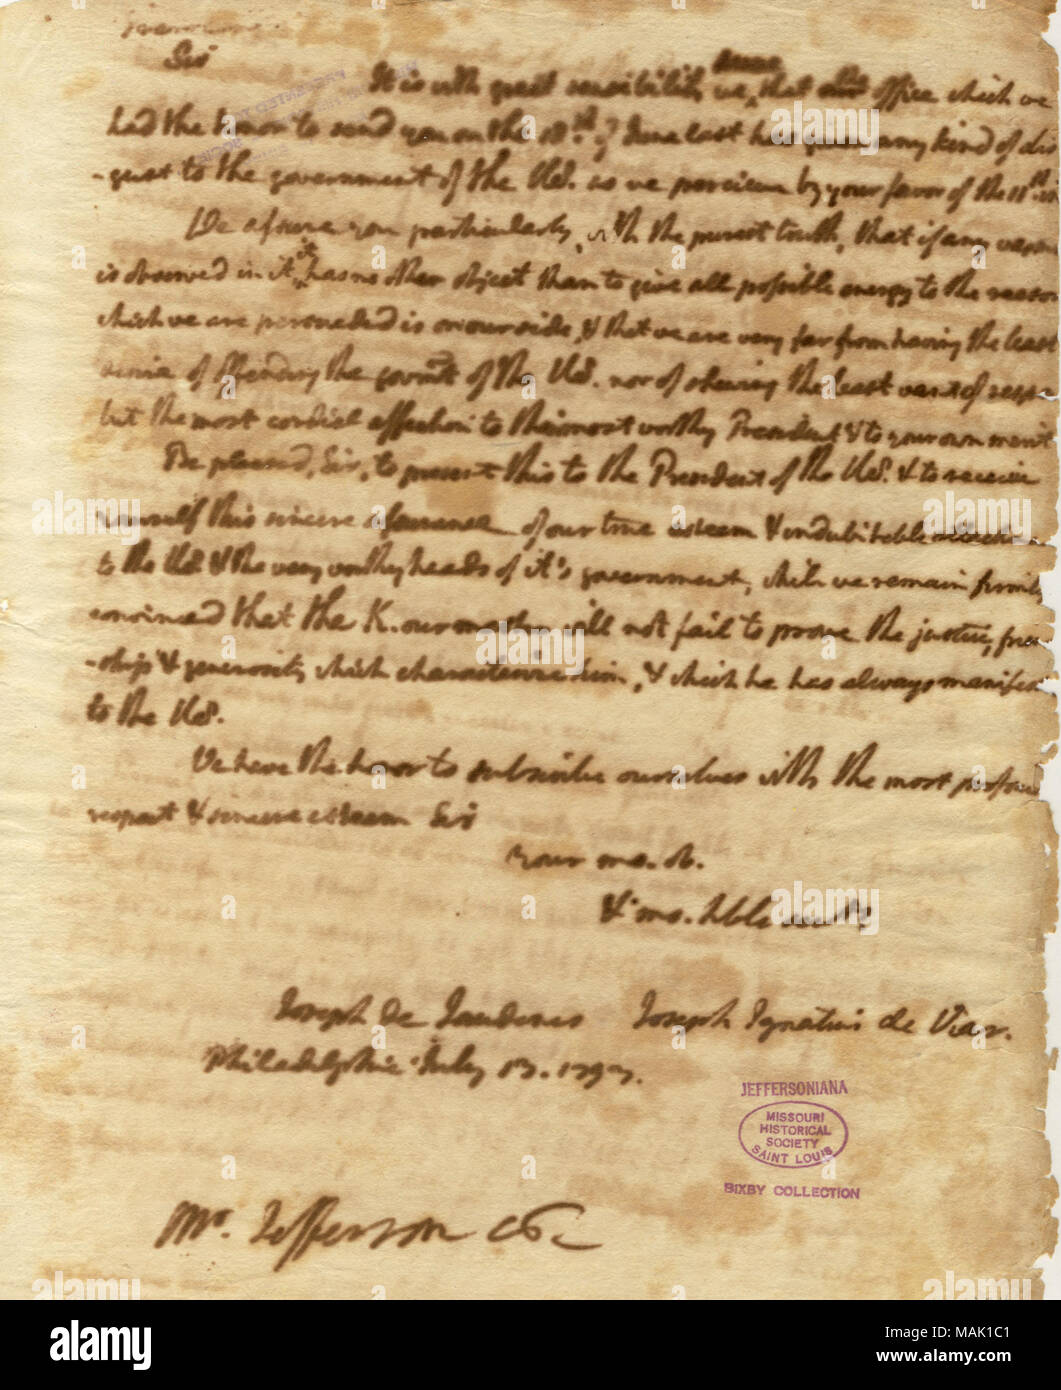 Sir
It is with great sensibility we, that the office which we
had the honor to send you on the 18th. of June last has given any kind of dis
-gust to the government of the US. as we perceive by your favor of the 11th.
We assure you particularly, with the purest truth, that if any
is observed in it, it has no other object than to give all possible energy to the reason
which we are persuaded is on our side, & that we are very far from having the least
of offending the govmt of the US. nor of shewing the least want of
but the most cordial affection to their most worthy President & to your own merit
Be pleased, Sir, to present this to the President of the US. & to receive
yourself this sincere assurance of our true esteem & indubitable
to the US. & the very worthy heads of it's government, while we remain firmly
convinced that the K. our master will not fail to prove the justice,
-ship & generosity which characterize him, & which he has always
to the US.
We have the honor to subscribe ourselves with the most
respect & sincere esteem Sir
Your mo. ob.
& mo. hble
Joseph de Jaudenes Joseph Ignatius de Viar.
Philadelphia July 13. 1793.
JEFFERSONIANA
MISSOURI
HISTORICAL
SOCIETY
SAINT LOUIS
BIXBY COLLECTION
Mr. Jefferson &c
alamy
Image ID: MAK1C1
www.alamy.com